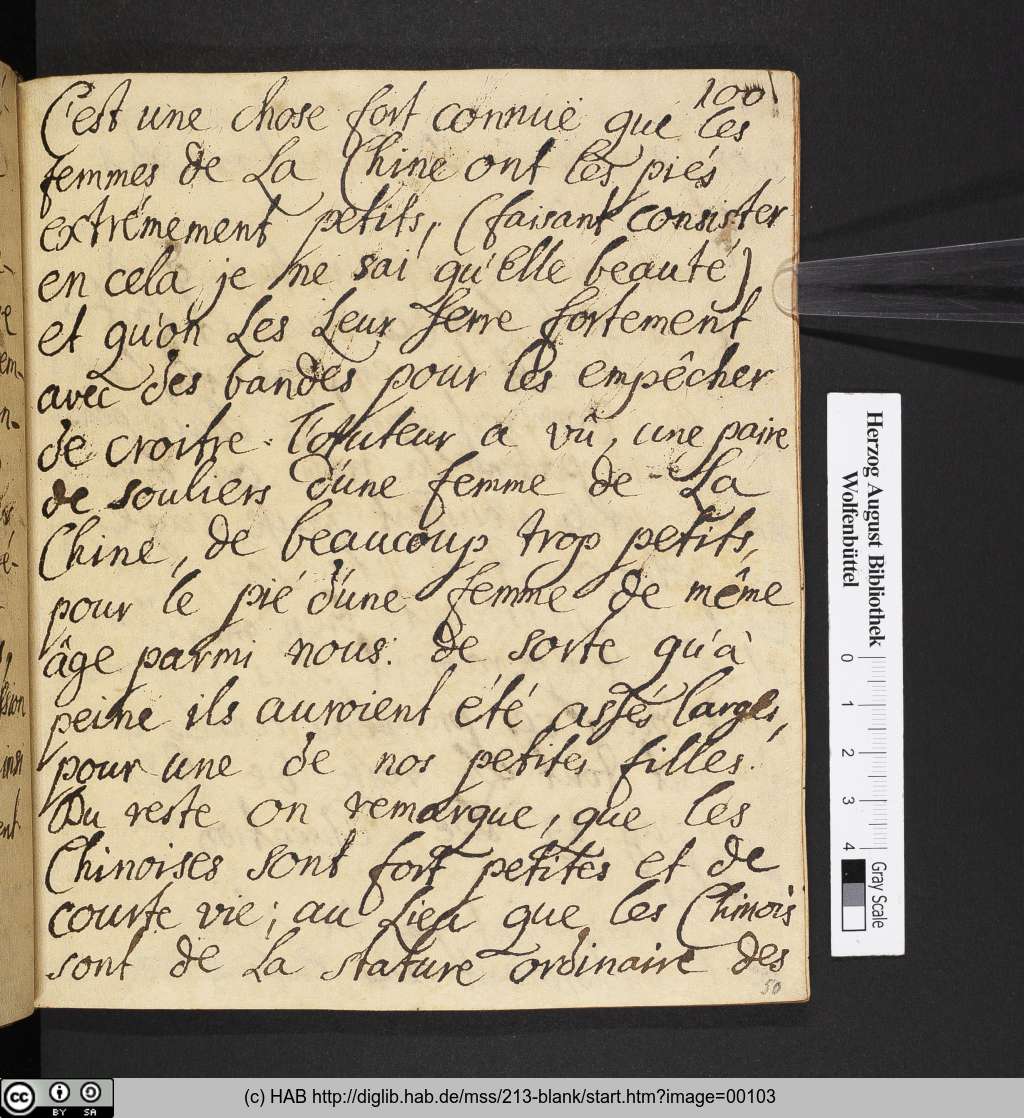 100
C'est une chose fort connuë que les
femmes de La Chine ont les piés
extrémement petits, (faisant consister
en cela je ne sai qu'Elle beauté)
et qu'on Les Leur serre fortement
avec des bandes pour les empêcher
de croitre. l'Auteur a vû, une paire
de souliers d'une femme de La
Chine, de beaucoup trop petits,
pour le pié d'une femme de même
âge parmi nous: de sorte qu'à
peine ils auroient été assés larges,
pour une de nos petites filles.
Du reste on remarque, que les
Chinoises sont fort petites et de
courte vie; au Lieu que les Chinois
sont de La stature ordinaire des
50
Herzog August Bibliothek
Wolfenbüttel
0 1 2 3 4
Gray Scale
cc BY SA
(c) HAB http://diglib.hab.de/mss/213-blank/start.htm?image=00103